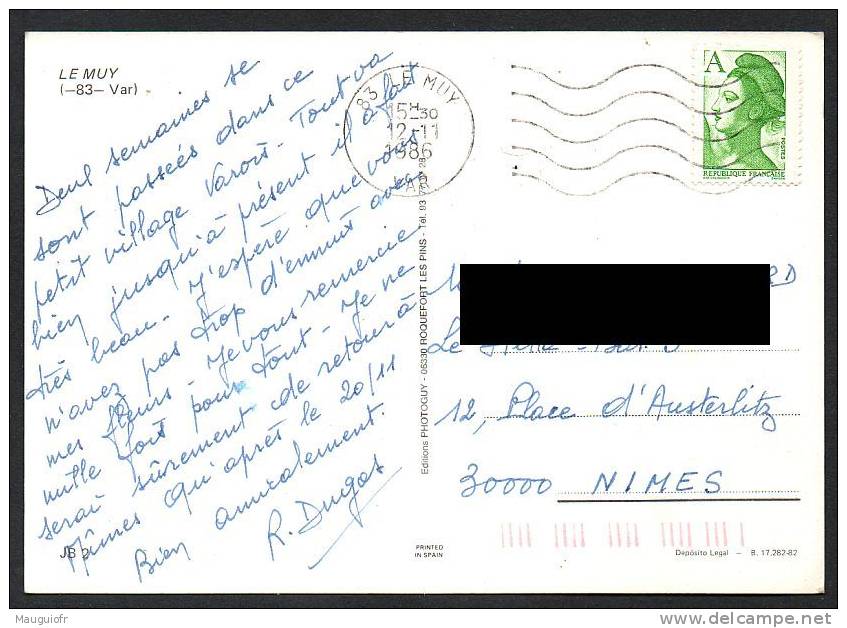 LE MUY
(–83– Var)
Deux semaines se
sont passées dans ce
petit village Varois - Tout va
bien jusqu'à présent il a fait
très beau - J'espère que vous
n'avez pas trop d'ennuis avec
mes fleurs - Je vous remercie
mille fois pour tout - Je ne
serai sûrement de retour à
Nîmes qu'après le 20/11
Bien amicalement.
R. Dugas
JB 2
Editions PHOTOGUY - 06330 ROQUEFORT LES PINS - Tél. 93
PRINTED
IN SPAIN
83 LE MUY
15H30
12-11
1986
VAR
A
POSTES
REPUBLIQUE FRANÇAISE
RD
Le
12, Place d'Austerlitz
30000 NIMES
Depósito Legal – B. 17.282-82
Mauguiofr
www.delcampe.net